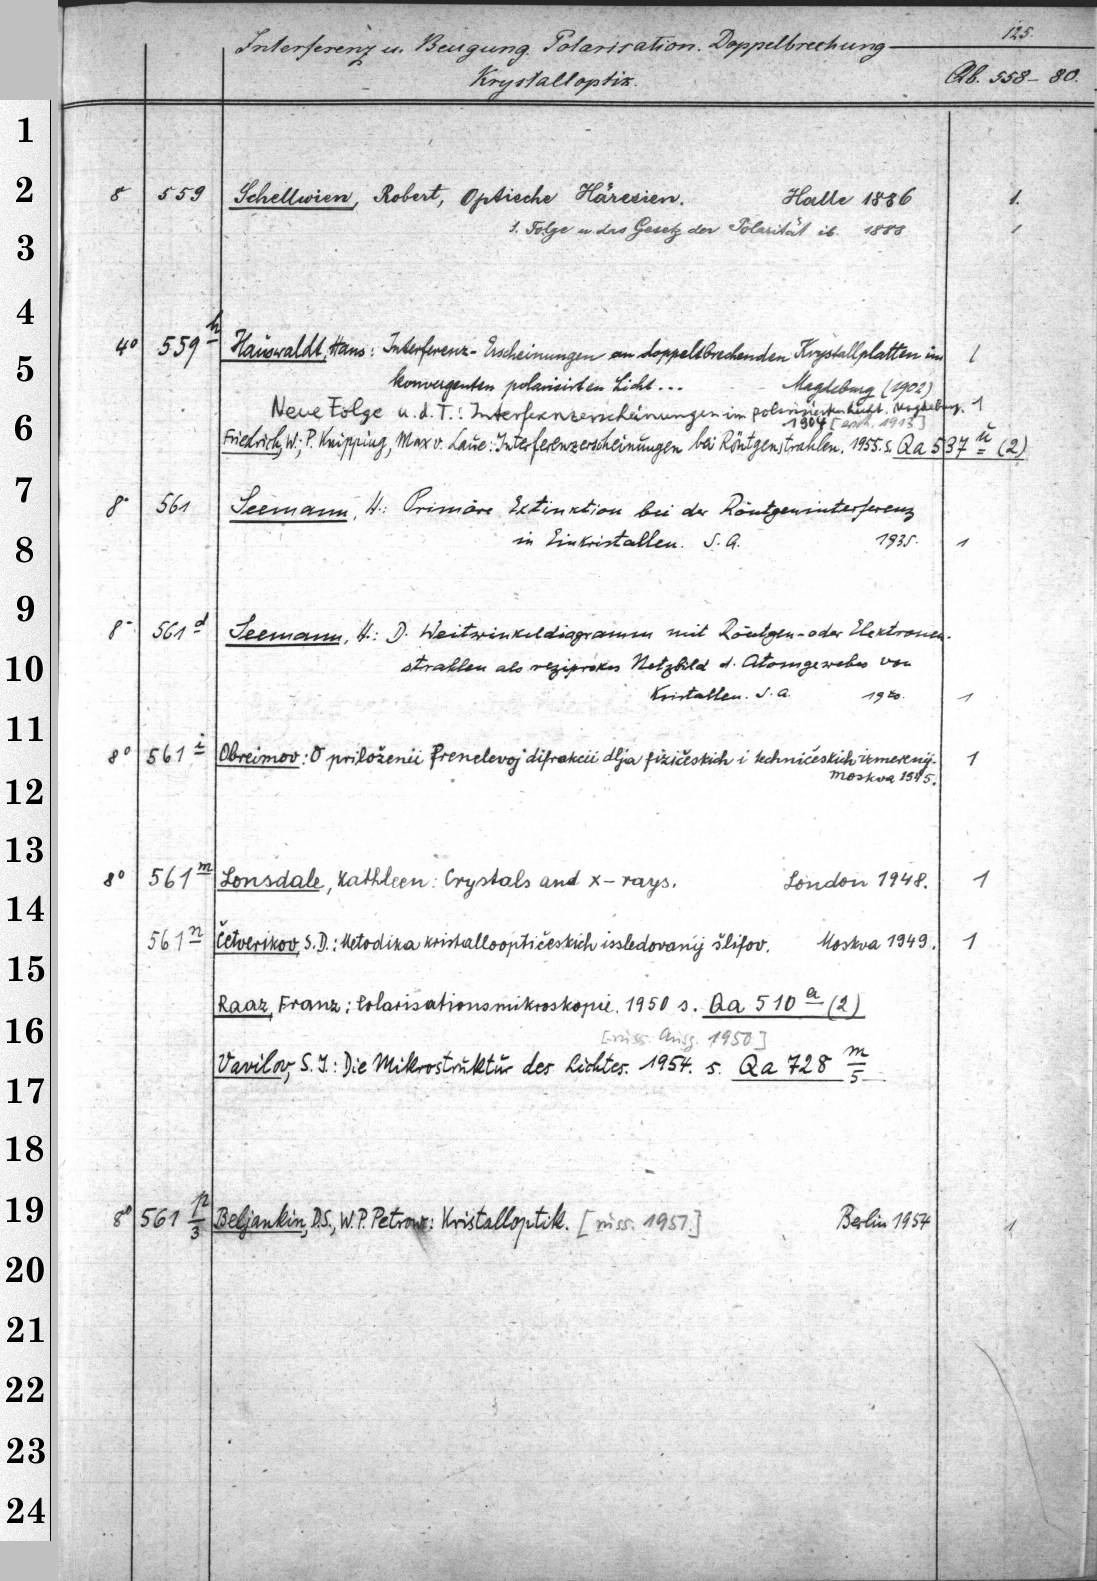 125.
Interferenz u. Beugung. Polarisation. Doppelbrechung
Krystalloptik. Qb. 558-80.
1
2
3
4
5
6
7
8
9
10
11
12
13
14
15
16
17
18
19
20
21
22
23
24
8 559 Schellwien, Robert, Optische Häresien. Halle 1886 1.
1. Folge u. das Gesetz der Polarität ib. 1888 1
4° 559 h Hauswaldt, Hans: Interferenz-Erscheinungen an doppeltbrechenden Krystallplatten im 1
konvergenten polarisirten Licht... Magdeburg (1902)
Neue Folge u. d. T.: Interferenzerscheinungen im polarisierten Licht. Magdeburg. 1
1904 [ersch. 1913]
Friedrich, W.; P. Knipping, Max v. Laue: Interferenzerscheinungen bei Röntgenstrahlen. 1955. s. Qa 537 ü (2)
8- 561 Seemann, H.: Primäre Extinktion bei der Röntgeninterferenz
in Einkristallen. S. A. 1935. 1
8- 561 d Seemann, H.: D. Weitwinkeldiagramm mit Röntgen- oder Elektronen-
strahlen als reziprokes Netzbild d. Atomgewebes von
Kristallen. S. A. 1940. 1
8° 561 i Obreimov: O priloženii frenelevoj difrakcii dlja fizičeskich i techničeskich izmerenij. 1
Moskva 1945.
8° 561 m Lonsdale, Kathleen: Crystals and x-rays. London 1948. 1
561 n Četverikov, S. D.: Metodika kristalloptičeskich issledovanij šlifov. Moskva 1949. 1
Raaz, Franz: Polarisationsmikroskopie. 1950 s. Qa 510 a (2)
[russ. Ausg. 1950]
Vavilov, S. I.: Die Mikrostruktur des Lichtes. 1954. s. Qa 728 m/5
8° 561 p/3 Beljankin, D.S., W.P. Petrow: Kristalloptik. [russ. 1951.] Berlin 1954 1